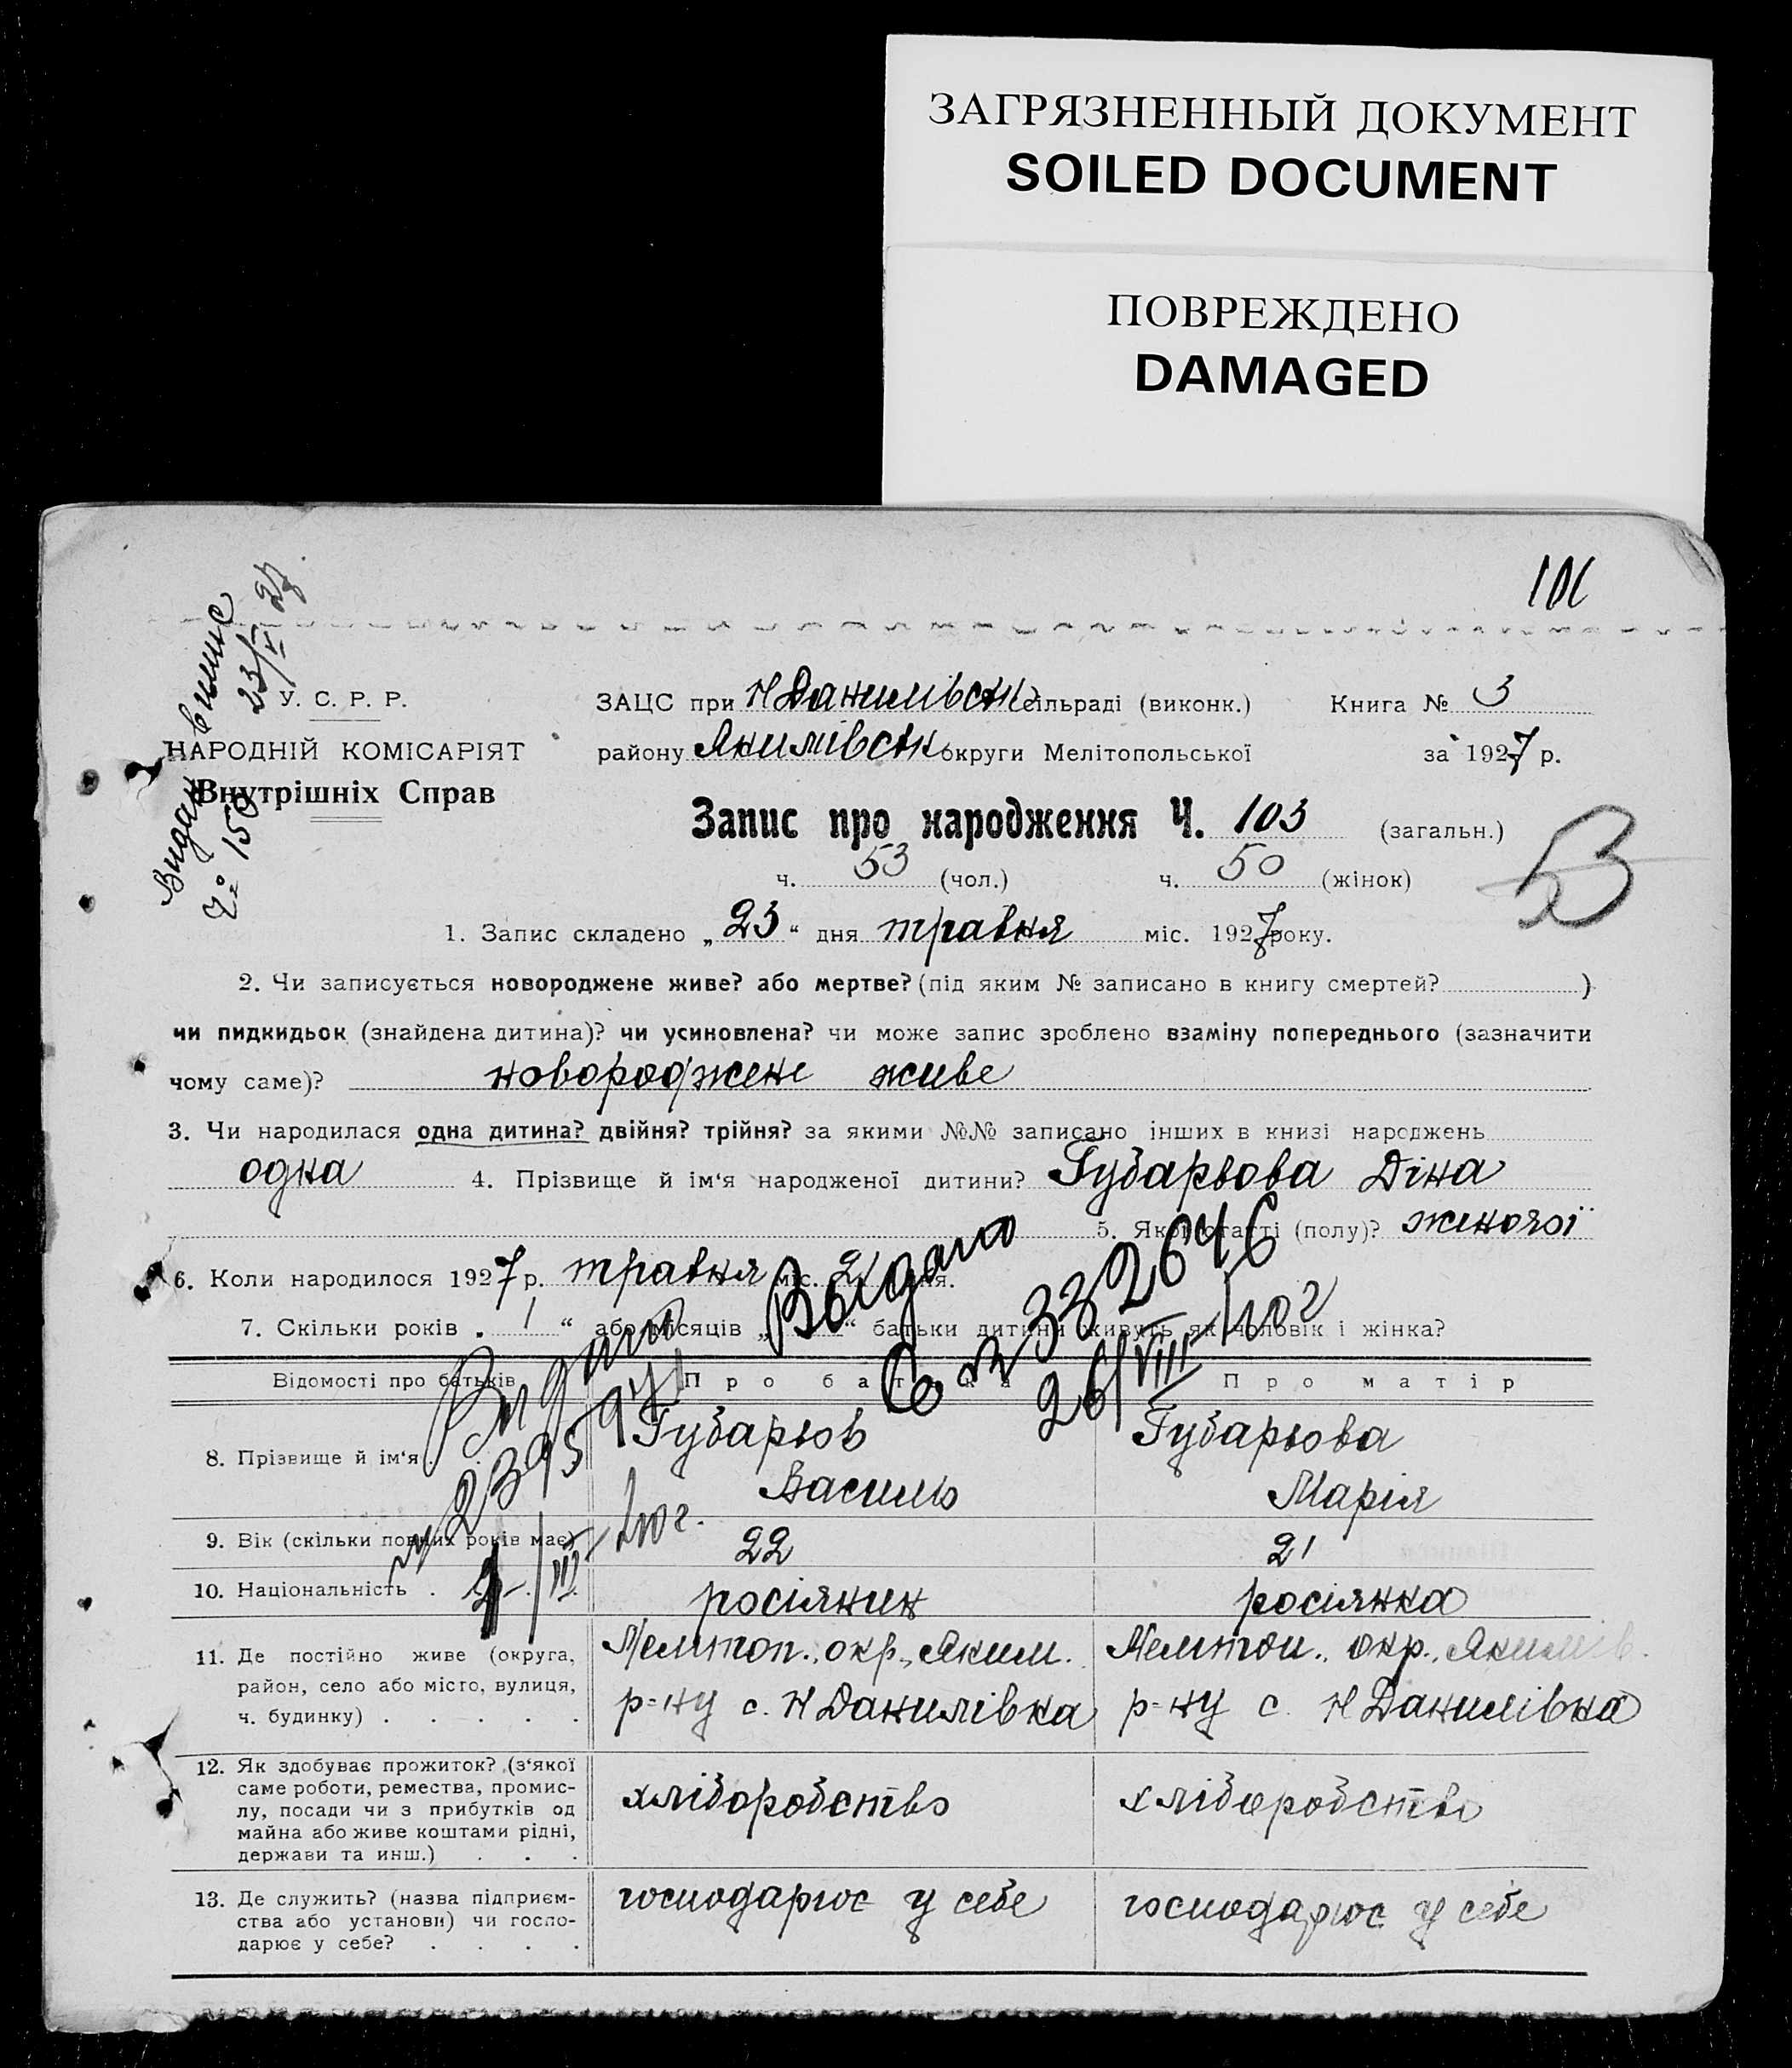 ЗАГРЯЗНЕННЫЙ ДОКУМЕНТ
SOILED DOCUMENT
ПОВРЕЖДЕНО
DAMAGED
Видан випис
23/V 27
№ 150
У. С. Р. Р.
НАРОДНІЙ КОМІСАРІЯТ
Внутрішніх Справ
ЗАЦС при Н Данилівськ сільраді (виконк.) Книга № 3
району Якимівськ округи Мелітопольської за 1927 р.
Запис про народження Ч. 103 (загальн.)
ч. 53 (чол.) ч. 50 (жінок)
1. Запис складено „23“ дня травня міс. 1927 року.
2. Чи записується новороджене живе? або мертве? (під яким № записано в книгу смертей? )
чи пидкидьок (знайдена дитина)? чи усиновлена? чи може запис зроблено взаміну попереднього (зазначити
чому саме)? новороджене живе
3. Чи народилася одна дитина? двійня? трійня? за якими №№ записано інших в книзі народжень
одна 4. Прізвище й ім‘я народженої дитини? Губарьова Діна
5. Якої статті (полу)? жиночої
6. Коли народилося 1927 р. травня міс. 21 дня.
7. Скільки років „ 1 “ або місяців „ “ батьки дитини живуть як чоловік і жінка?
Выдано
26/VIII
Відомості про батьків Про батька Про матір
8. Прізвище й ім‘я Губарьов Губарьова
Василь Марія
9. Вік (скільки повних років має) 22 21
10. Національність росіянин росіянка
11. Де постійно живе (округа, район, село або місто, вулиця, ч. будинку) Мелітоп. окр., Яким. Мелітоп. окр., Якимів.
р-ну с. Н Данилівка р-ну с. Н Данилівка
12. Як здобуває прожиток? (з‘якої
саме роботи, ремества, промис-
лу, посади чи з прибутків од
майна або живе коштами рідні,
держави та инш.) хліборобство хліборобство
13. Де служить? (назва підприєм-
ства або установи) чи госпо-
дарює у себе? господарює у себе господарює у себе